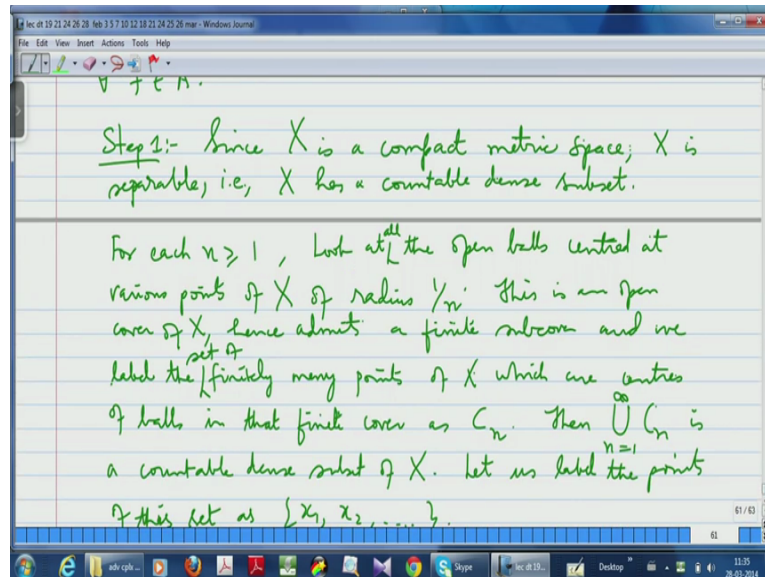 lec dt 19 21 24 26 28 feb 3 5 7 10 12 18 21 24 25 26 mar - Windows Journal
File Edit View Insert Actions Tools Help
∀ f ∈ A.
Step 1:- Since X is a compact metric space, X is
separable, i.e., X has a countable dense subset.
For each n ≥ 1, Look at all the open balls centred at
various points of X of radius 1/n. This is an open
cover of X, hence admits a finite subcover and we
label the set of finitely many points of X which are centres
of balls in that finite cover as C_n. Then ∞⋃n=1 C_n is
a countable dense subst of X. Let us label the points
of this set as {x1, x2, ....}.
61 / 63
61
adv cplx ...
Skype
lec dt 19...
Desktop
11:35
28-03-2014